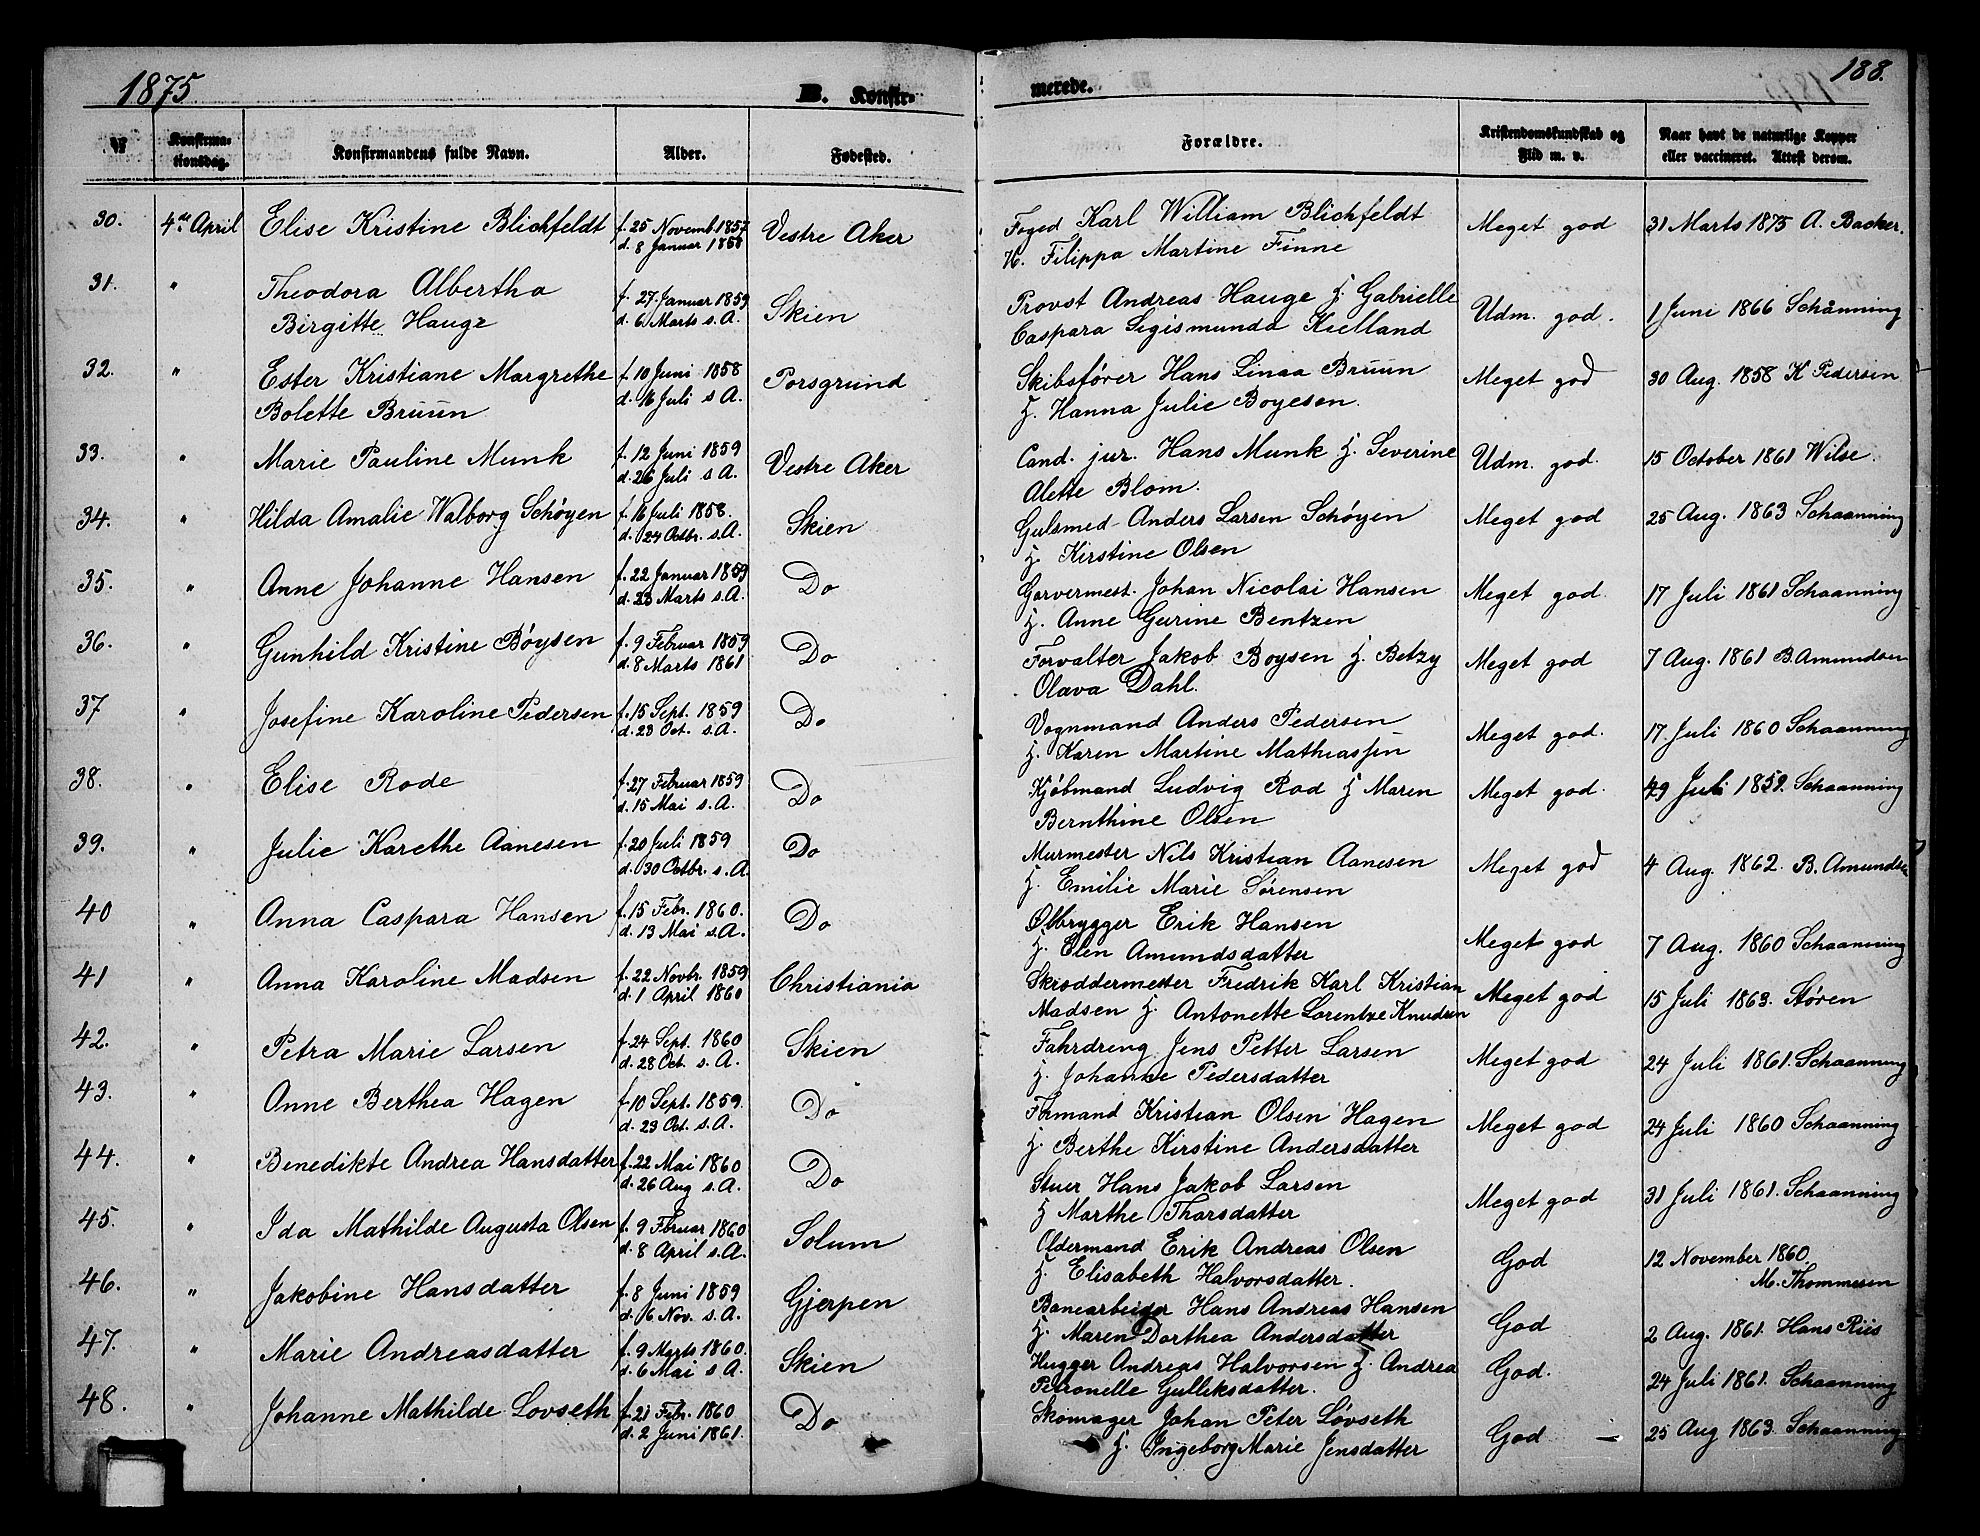 1875
B. Konfir-
merede.
188.
№
Konfirma-
tionsdag.
Konfirmandens fulde Navn.
Alder.
Fødested.
Forældre.
Kristendomskundskab og
Flid m. v.
Naar havt de naturlige Kopper
eller vaccineret. Attest derom.
30. 4de April Elise Kristine Blichfeldt f. 25 Novemb. 1857 Vestre Aker Foged Karl William Blichfeldt Meget god 31 Marts 1875 A. Backer.
d. 8 Januar 1858 H. Filippa Martine Finne
31. " Theodora Albertha f. 27 Januar 1859 Skien Provst Andreas Hauge H. Gabrielle Udm. god. 1 Juni 1866 Schånning
Birgitte Hauge d. 6 Marts s. A. Caspara Sigismunda Kielland
32. " Ester Kristiane Margrethe f. 10 Juni 1858 Porsgrund Skibsfører Hans Linaa Bruun Meget god 30 Aug. 1858 K Pedersen
Bolette Bruun d. 16 Juli s A. H. Hanna Julie Boyesen.
33. " Marie Pauline Munk f. 12 Juni 1859 Vestre Aker Cand. jur. Hans Munk H. Severine Udm. god. 15 October 1861 Wilse.
d. 26 Juli s. A. Alette Blom.
34. " Hilda Amalie Walborg Schøyen f. 16 Juli 1858. Skien Gulsmed Anders Larsen Schøyen Meget god 25 Aug. 1863 Schaanning
d. 24 Octbr. s. A. H. Kirstine Olsen
35. " Anne Johanne Hansen f. 22 Januar 1859 Do Garvermest. Johan Nicolai Hansen Meget god. 17 Juli 1861 Schaanning
d. 23 Marts s. A. H. Anne Gurine Bentzen
36. " Gunhild Kristine Bøysen f. 9 Februar 1859 Do Forvalter Jakob Boysen H. Betzy Meget god 7 Aug. 1861 B. Amundsen
d. 8 Marts 1861 Olava Dahl.
37 " Josefine Karoline Pedersen f. 15 Sept. 1859 Do Vognmand Anders Pedersen Meget god. 17 Juli 1860 Schaanning
d. 23 Oct. s. A. H. Karen Martine Mathiassen
38. " Elise Rode f. 27 Februar 1859 Do Kjøbmand Ludvig Rod H Maren Meget god. 29 Juli 1859. Schaanning
d. 15 Mai s. A. Bernthine Olsen
39. " Julie Karethe Aanesen f. 20 Juli 1859 Do Murmester Nils Kristian Aanesen Meget god 4 Aug. 1862. B. Amundsen
d. 30 Octbr. s. A H. Emilie Marie Sørensen
40 " Anna Caspara Hansen f. 15 Febr. 1860. Do Ølbrygger Erik Hansen Meget god 7 Aug. 1860 Schaanning
d. 13 Mai s. A. H. Elen Amundsdatter
41 " Anna Karoline Madsen f. 22 Novbr. 1859 Christiania Skræddermester Fredrik Karl Kristian Meget god 15 Juli 1863. Støren
d. 1 April 1860 Madsen H. Antonette Lorentze Knudsen
42. " Petra Marie Larsen f. 24 Sept. 1860 Skien Fahrdreng Jens Petter Larsen Meget god 24 Juli 1861. Schaanning
d. 28 Oct. s. A. H. Johanne Pedersdatter
43. " Anne Berthea Hagen f. 10 Sept. 1859. Do Formand Kristian Olsen Hagen Meget god 24 Juli 1860 Schaanning
d. 23 Oct. s. A. H. Berthe Kirstine Andersdatter
44. " Benedikte Andrea Hansdatter f. 22 Mai 1860 Do Stuer Hans Jakob Larsen Meget god 31 Juli 1861. Schaanning
d. 26 Aug s. A. H Marthe Tharsdatter
45. " Ida Mathilde Augusta Olsen f. 9 Februar 1860 Solum Oldermand Erik Andreas Olsen God 12 November 1860.
d. 8 April s. A. H. Elisabeth Halvorsdatter. M. Thommesen
46. " Jakobine Hansdatter f. 8 Juni 1859 Gjerpen Banearbeider Hans Andreas Hansen God 2 Aug. 1861. Hans Riis
d. 6 Nov. s. A. H. Maren Dorthea Andersdatter
47. " Marie Andreasdatter f. 9 Marts 1860. Skien Hugger Andreas Halvorsen H. Andrea God. 24 Juli 1861. Schaanning
d. 6 Mai s. A. Petronelle Gulliksdatter.
48. " Johanne Mathilde Lovseth f. 21 Febr. 1860 Do Skomager Johan Peter Løvseth God 25 Aug 1863. Schaanning
d. 2 Juni 1861. H. Ingeborg Marie Jensdatter